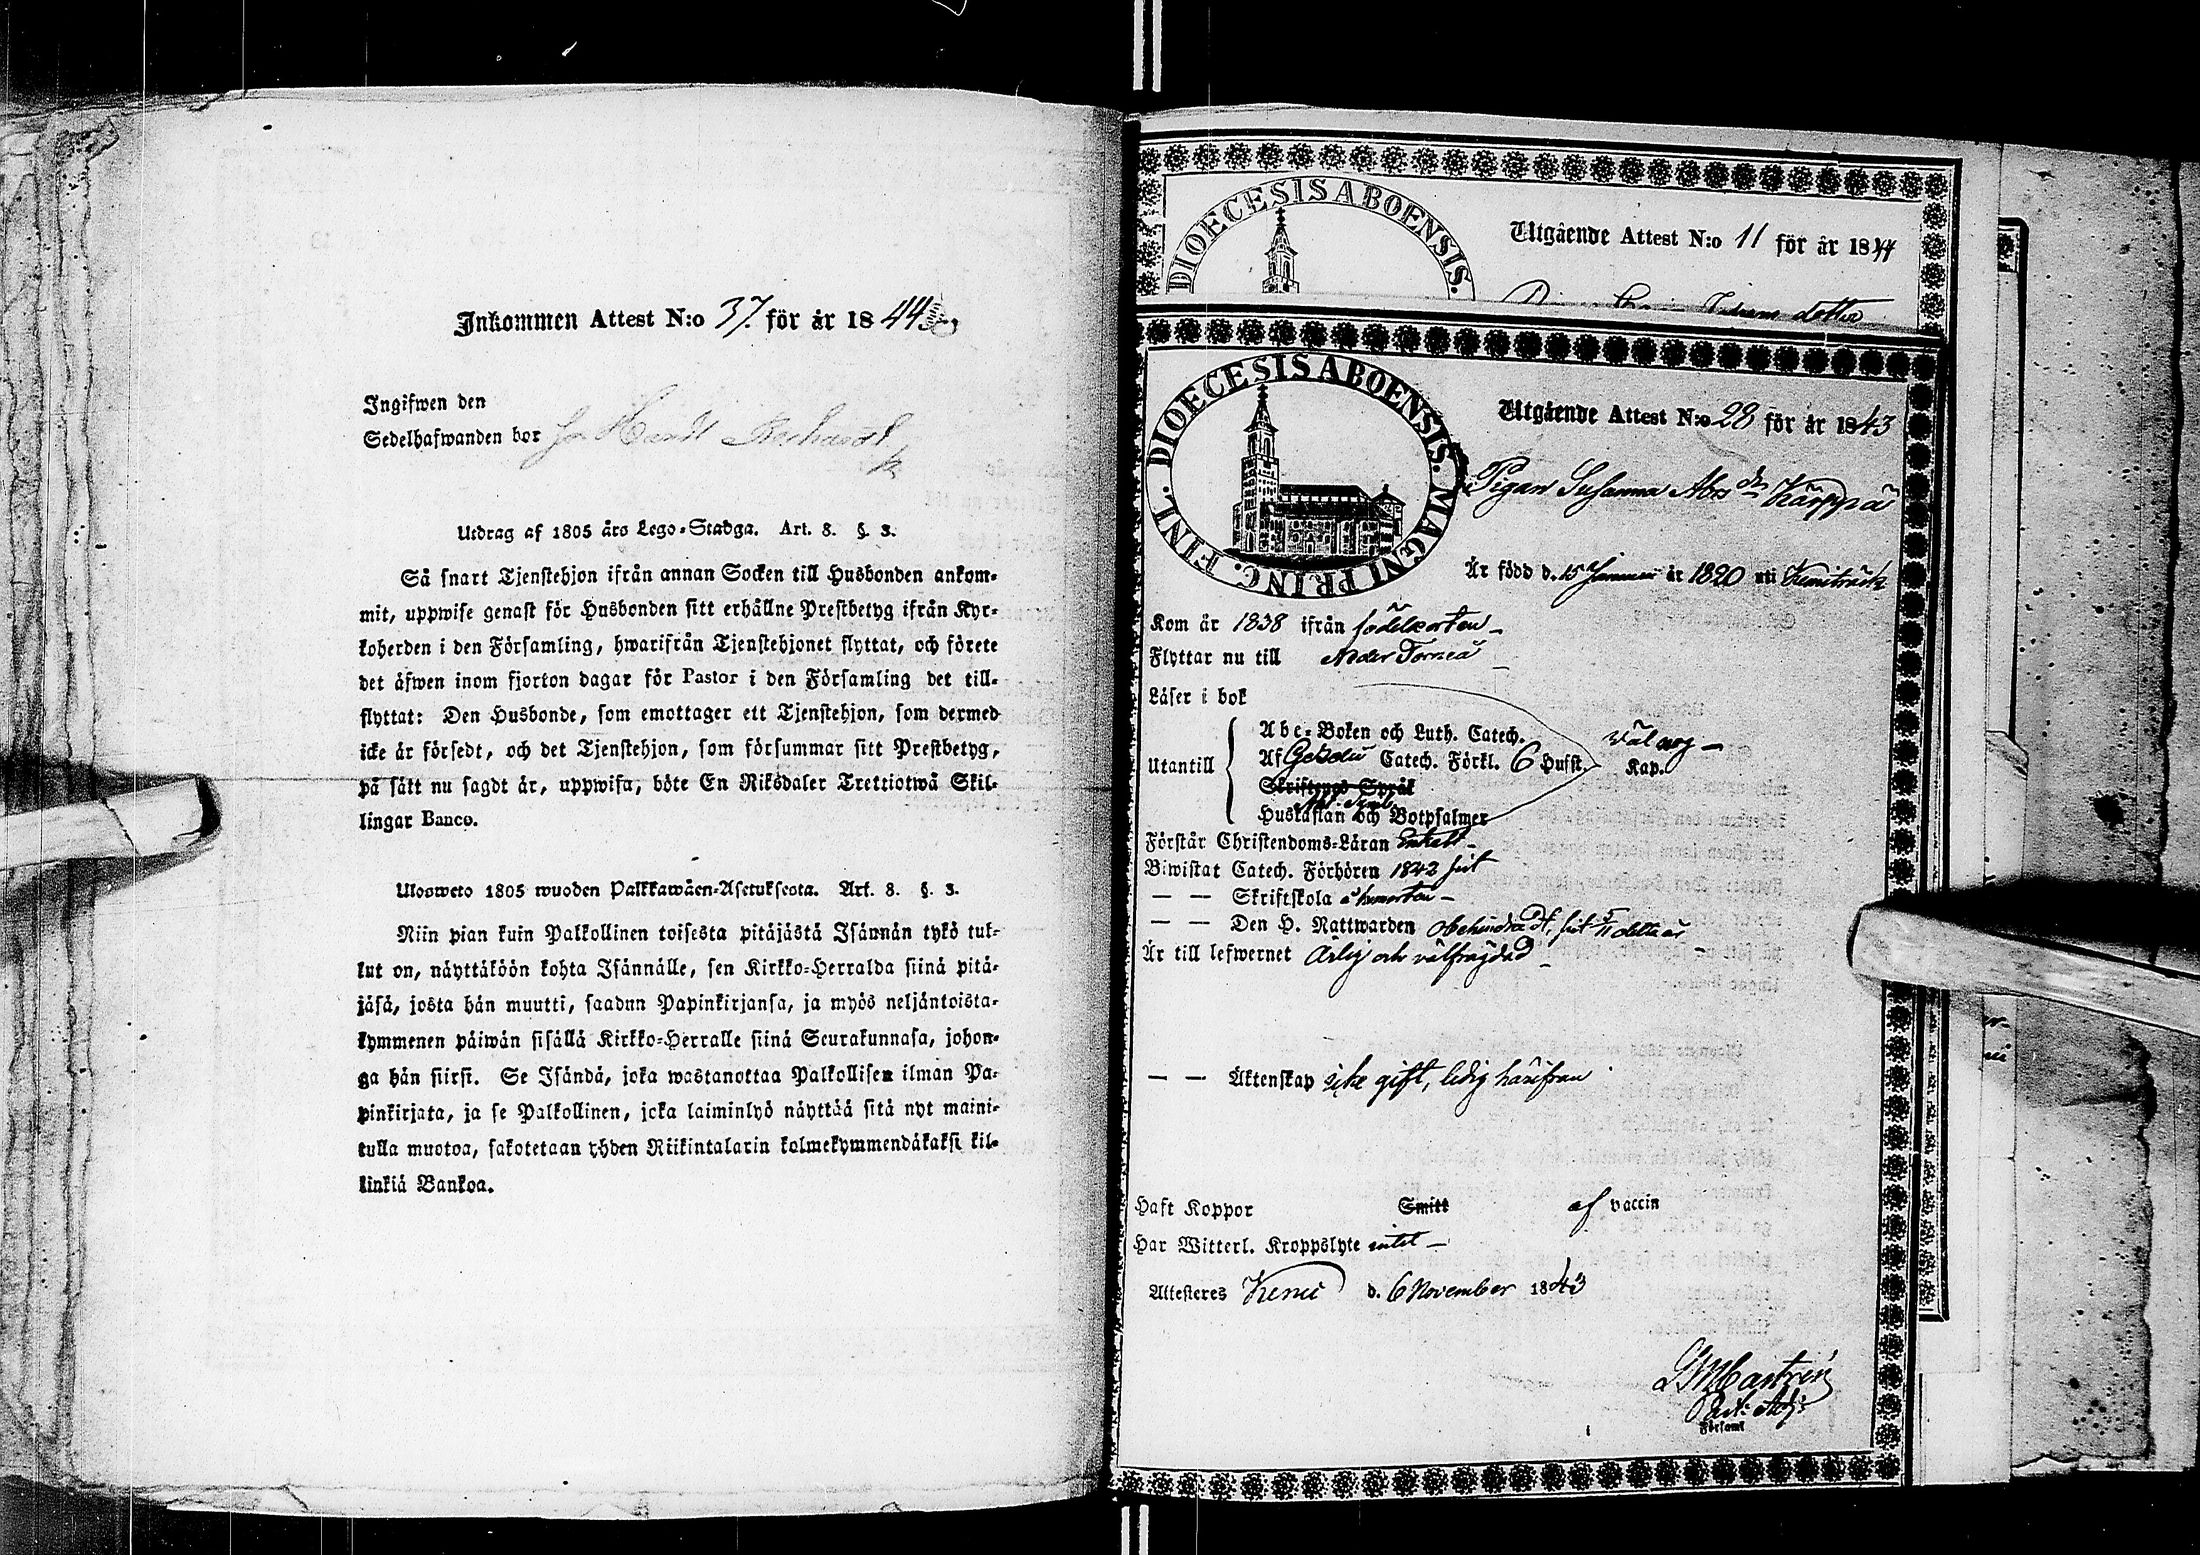 Inkommen Attest N:o 37. för år 1844
Ingifwen den
Sedelhafwanden bor hos
Utdrag af 1805 års Lego-Stadga. Art. 8. §. 3.
Så snart Tjenstehjon ifrån annan Socken till Husbonden ankom-
mit, uppwise genast för Husbonden sitt erhållne Prestbetyg ifrån Kyr-
koherden i den Församling, hwarifrån Tjenstehjonet flyttat, och förete
det äfwen inom fjorton dagar för Pastor i den Församling det till-
flyttat: Den Husbonde, som emottager ett Tjenstehjon, som dermed
icke är försedt, och det Tjenstehjon, som försummar sitt Prestbetyg,
på sätt nu sagdt är, uppwisa, böte En Riksdaler Trettiotwå Skil-
lingar Banco.
Ulosweto 1805 wuoden Palkkawäen-Asetuksesta. Art. 8. §. 3.
Niin pian kuin Palkollinen toisesta pitäjästä Isännän tykö tul-
lut on, näyttäköön kohta Isännälle, sen Kirkko-Herralda siinä pitä-
jäsä, josta hän muutti, saadun Papinkirjansa, ja myös neljäntoista-
kymmenen päiwän sisällä Kirkko-Herralle siinä Seurakunnasa, johon-
ga hän siirsi. Se Isändä, joka wastanottaa Palkollisen ilman Pa-
pinkirjata, ja se Palkollinen, joka laiminlyö näyttää sitä nyt maini-
tulla muotoa, sakotetaan yhden Riikintalarin kolmekymmendäkaksi kil-
linkiä Bankoa.
DIOECESIS ABOENSIS.
Utgående Attest N:o 11 för år 1844
dotter
DIOECESIS ABOENSIS. MAGNI PRINC. FINL.
Utgående Attest N:o 28 för år 1843
Pigan Susanna Abrs dr Kärppä
Är född d. 15 Januari år 1820 uti Kemiträsk
Kom år 1838 ifrån födelseorten
Flyttar nu till Neder Torneå
Läser i bok
Abc-Boken och Luth. Catech.
väl nog
Utantill
Af Catech. Förkl. 6 Hufst. Kap.
Skriftenes Språk
Huskaflan och Botpsalmer
Förstår Christendoms-Läran Enkelt
Biwistat Catech. Förhören 1842 sist
— — Skriftskola å hemorten
— — Den H. Nattwarden obehindradt, sist 5/11 detta år
Är till lefwernet Ärlig och välfrägdad
— — Äktenskap icke gift, ledig härifrån
Haft Koppor Smitt af vaccin
Har Witterl. Kroppslyte intet
Attesteres Kemi d. 6 November 1843
Castrén
Past. Adj:
Församl